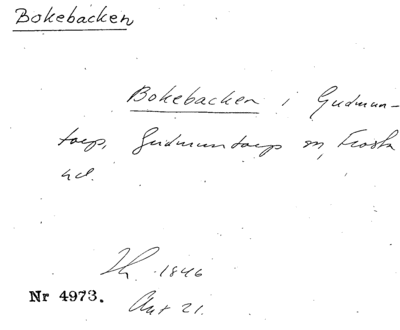 Bokebacken
Bokebacken i Gudmun-
torp, Gudmuntorp sn, Frosta
hd.
1846
Nr 4973. Akt 21.